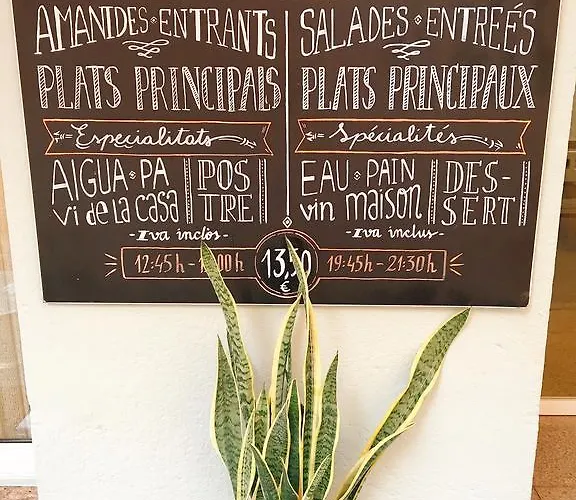 AMANIDES · ENTRANTS
PLATS PRINCIPALS
Especialitats
AIGUA · PA
vi de la casa
POS
TRE
-Iva inclòs-
SALADES · ENTREÉS
PLATS PRINCIPAUX
Spécialités
EAU · PAIN
vin maison
DES-
SERT
-Iva inclus-
12:45h -
13,50
€
19:45h - 21:30h